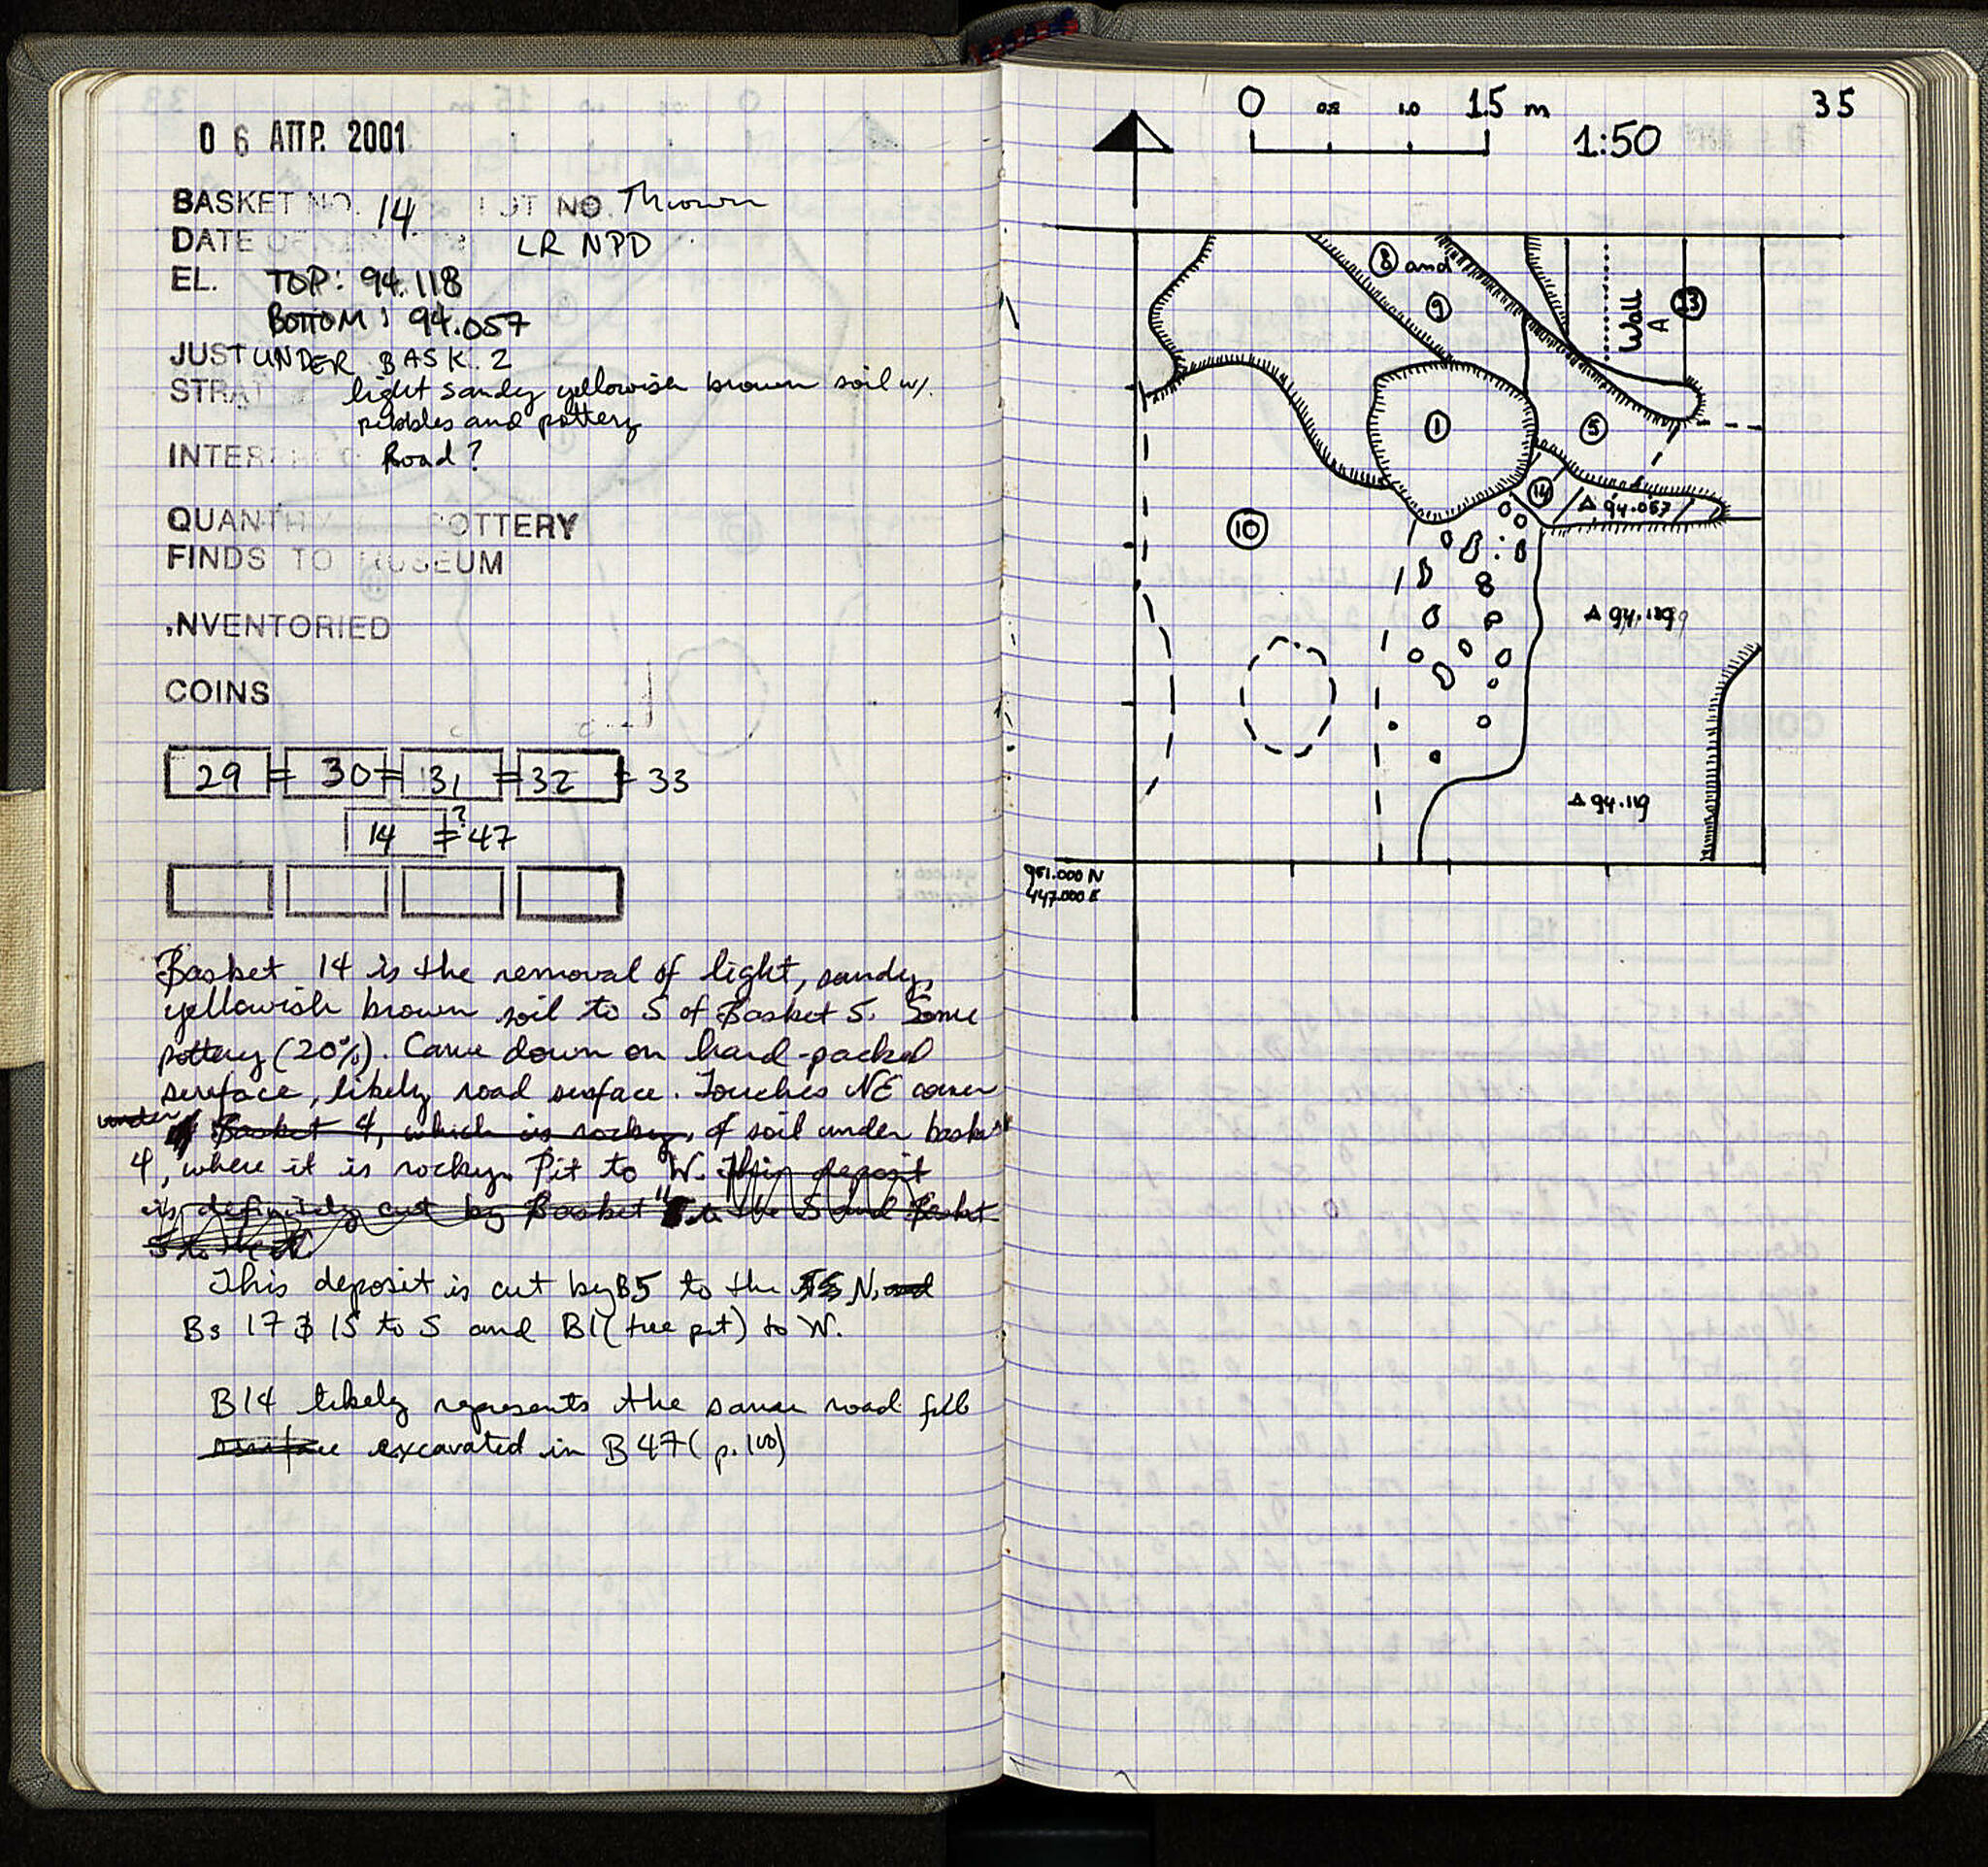 0 6 ΑΠΡ. 2001
BASKET NO. 14 LOT NO. Thrown
DATE LR NPD
EL. TOP: 94.118
BOTTOM: 94.057
JUST UNDER BASK. 2
STRAT light sandy yellowish brown soil w/
pebbles and pottery
INTERPRET Road?
QUANTITY POTTERY
FINDS TO MUSEUM
INVENTORIED
COINS
29 = 30 = 31 = 32 = 33
14 =? 47
Basket 14 is the removal of light, sandy,
yellowish brown soil to S of Basket 5. Some
pottery (20%). Came down on hard-packed
surface, likely road surface. Touches NE corner
under Basket 4, which is rocky, of soil under basket
4, where it is rocky. Pit to W. This deposit
is definitely cut by Basket to the S and Basket
5 to the
This deposit is cut by B5 to the N, and
Bs 17 & 15 to S and B1 (tree pit) to W.
B14 likely represents the same road fill
surface excavated in B47 (p. 100)
35
0 0.5 1.0 1.5 m
1:50
8 and
9
Wall
A
13
1
5
14
Δ 94.057
10
Δ 94.119
951.000 N
447.000 E